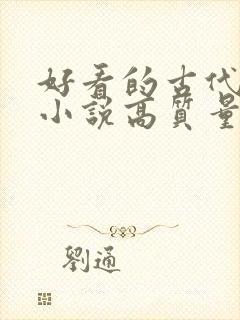 好看的古代
小說高質量
劉通